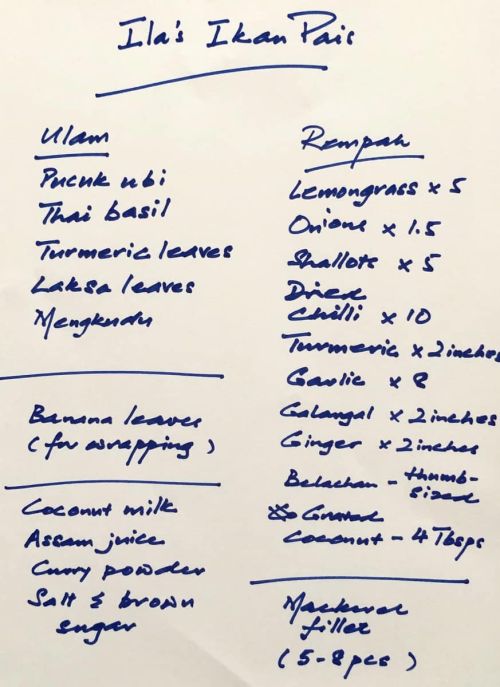 Ila's Ikan Pais
Ulam
Pucuk ubi
Thai basil
Turmeric leaves
Laksa leaves
Mengkudu
Banana leaves
(for wrapping)
Coconut milk
Assam juice
Curry powder
Salt & brown
sugar
Rempah
Lemongrass x 5
Onions x 1.5
Shallots x 5
Dried
Chilli x 10
Turmeric x 2 inches
Garlic x 8
Galangal x 2 inches
Ginger x 2 inches
Belachan - thumb-
sized
Grated
Coconut - 4 Tbsps
Mackerel
fillet
(5-8 pcs)